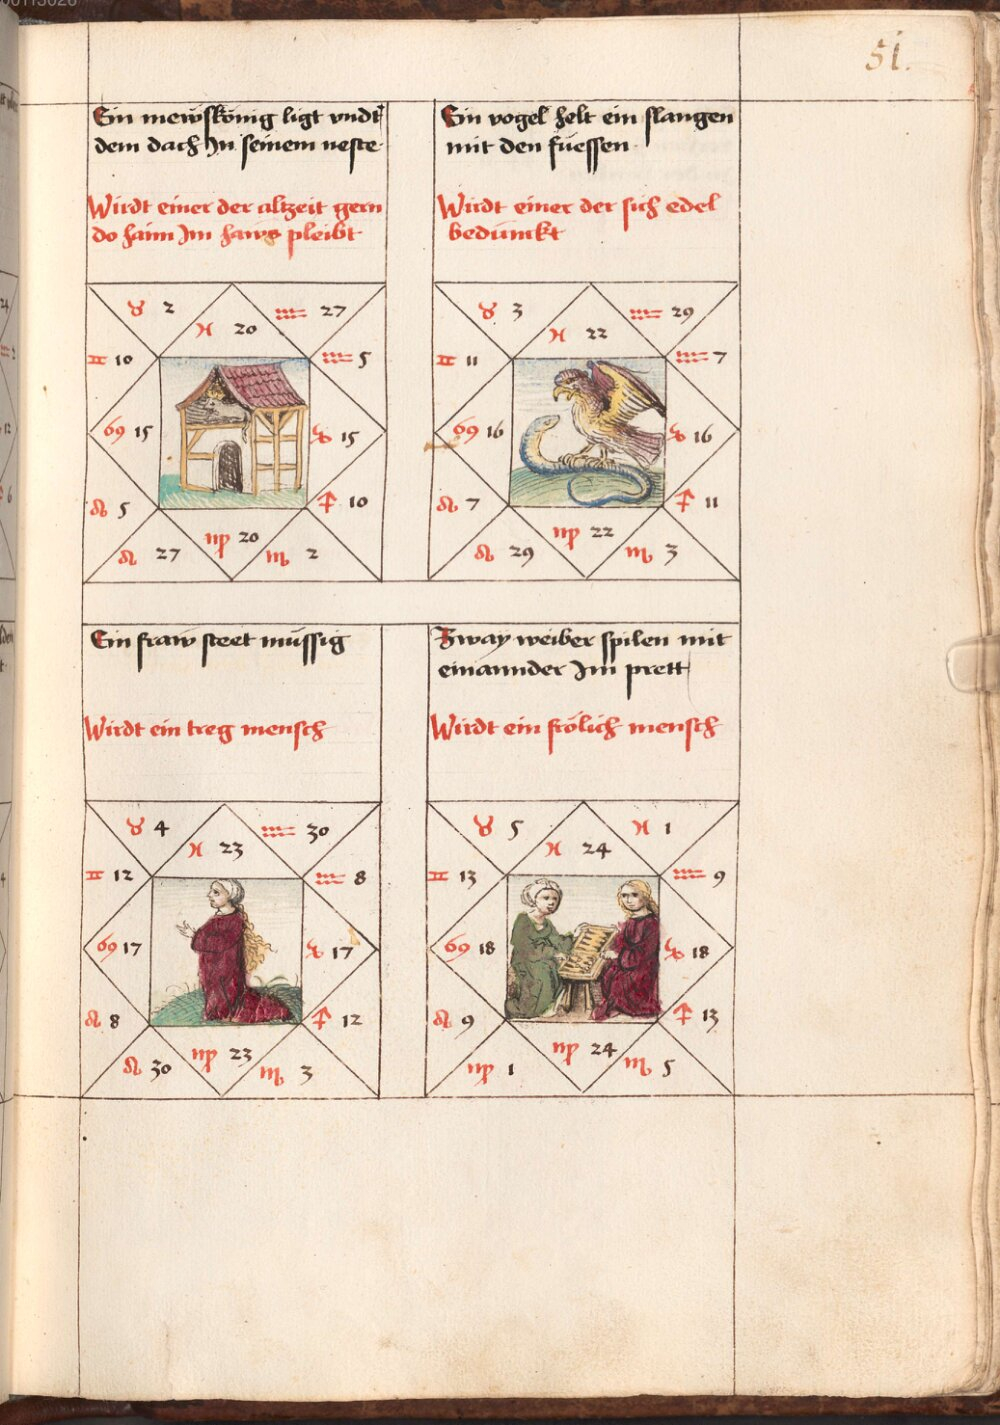 51.
Ein mewskönig ligt vndt
dem dach Jn seinem neste
Wirdt einer der altzeit gern
do haim Jm haws pleibt
♉ 2
♓ 20
♒ 27
♊ 10
♒ 5
♋ 15
♑ 15
♌ 5
♐ 10
♌ 27
♍ 20
♏ 2
Ein vogel helt ein slangen
mit den füessen
Wirdt einer der sich edel
bedunckt
♉ 3
♓ 22
♒ 29
♊ 11
♒ 7
♋ 16
♑ 16
♌ 7
♐ 11
♌ 29
♍ 22
♏ 3
Ein fraw steet müssig
Wirdt ein treg mensch
♉ 4
♓ 23
♒ 30
♊ 12
♒ 8
♋ 17
♑ 17
♌ 8
♐ 12
♌ 30
♍ 23
♏ 3
Zway weiber spilen mit
einannder Jm prett
Wirdt ein frölich mensch
♉ 5
♓ 24
♓ 1
♊ 13
♒ 9
♋ 18
♑ 18
♌ 9
♐ 13
♍ 1
♍ 24
♏ 5